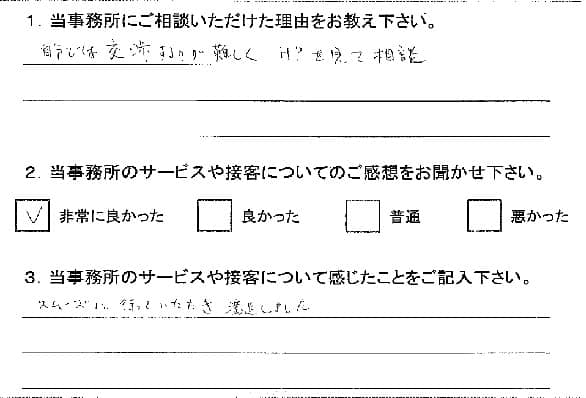 1. 当事務所にご相談いただけた理由をお教え下さい。
自分では交渉するのが難しく HPを見て相談
2. 当事務所のサービスや接客についてのご感想をお聞かせ下さい。
非常に良かった 良かった 普通 悪かった
3. 当事務所のサービスや接客について感じたことをご記入下さい。
スムーズに行っていただき満足しました